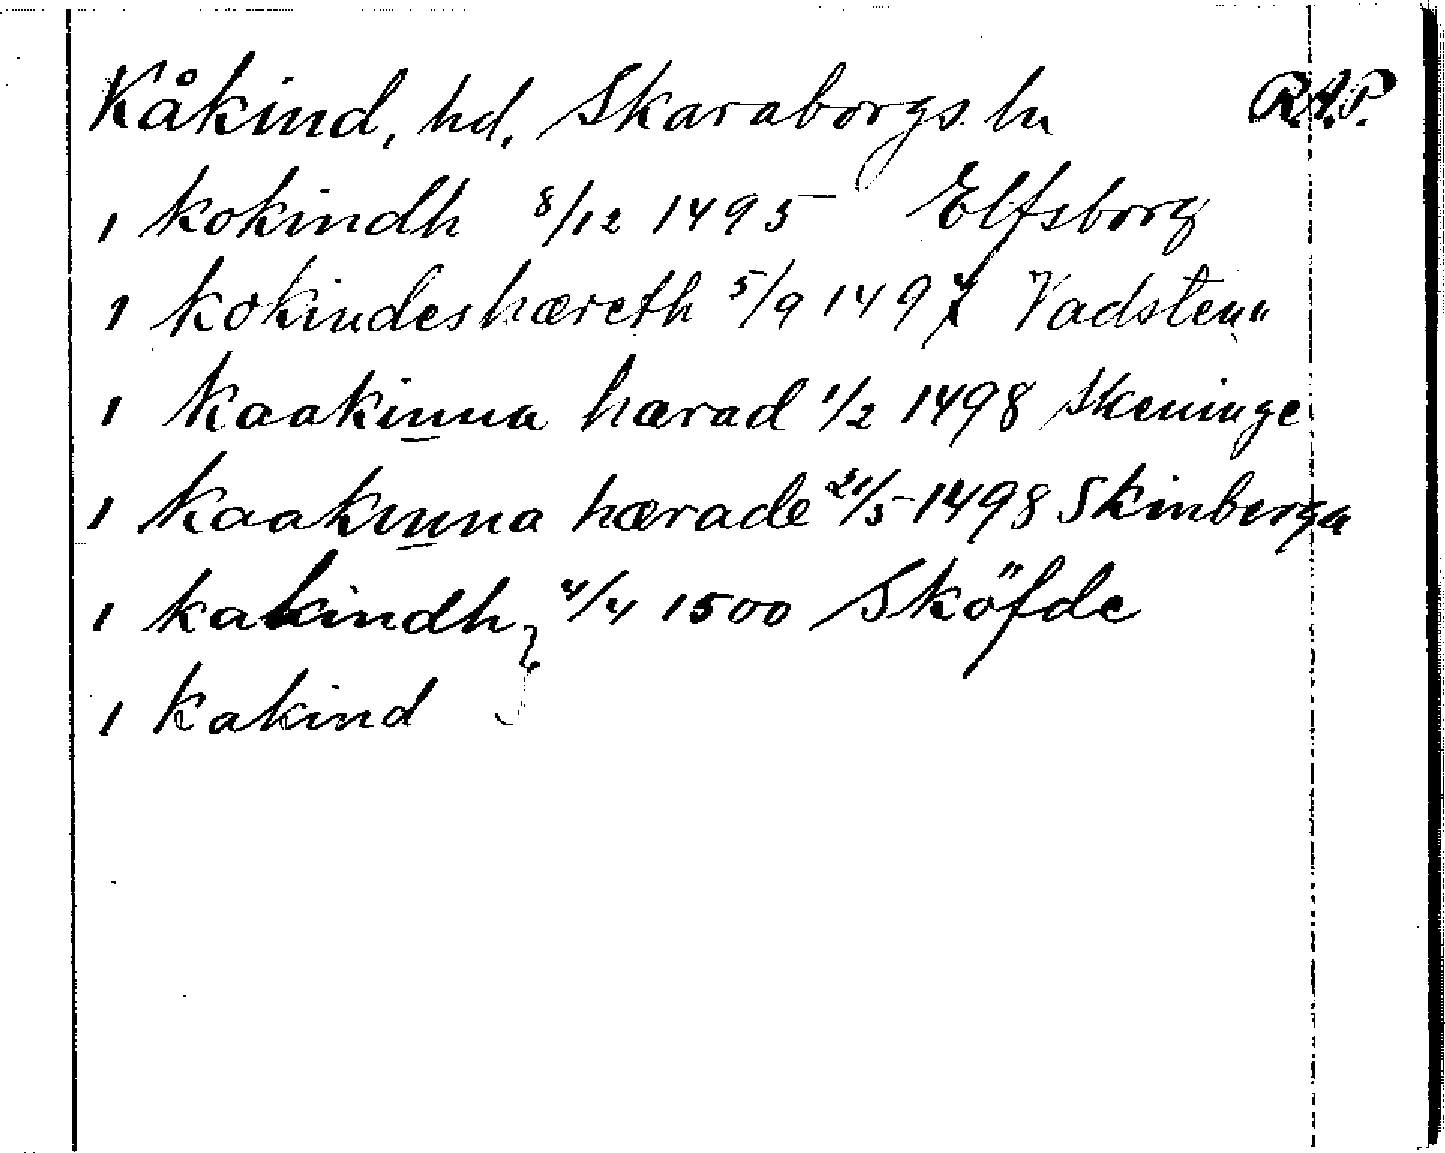 Kåkind, hd. Skaraborgs ln R.A.P.
1 kokindh 8/12 1495 Elfsborg
1 kokindeshæreth 5/9 1497 Vadstena
1 Kaakinna hærad 1/2 1498 Skeninge
1 Kaakinna hærade 21/5 1498 Skinberga
1 kakindh 4/4 1500 Sköfde
1 kakind